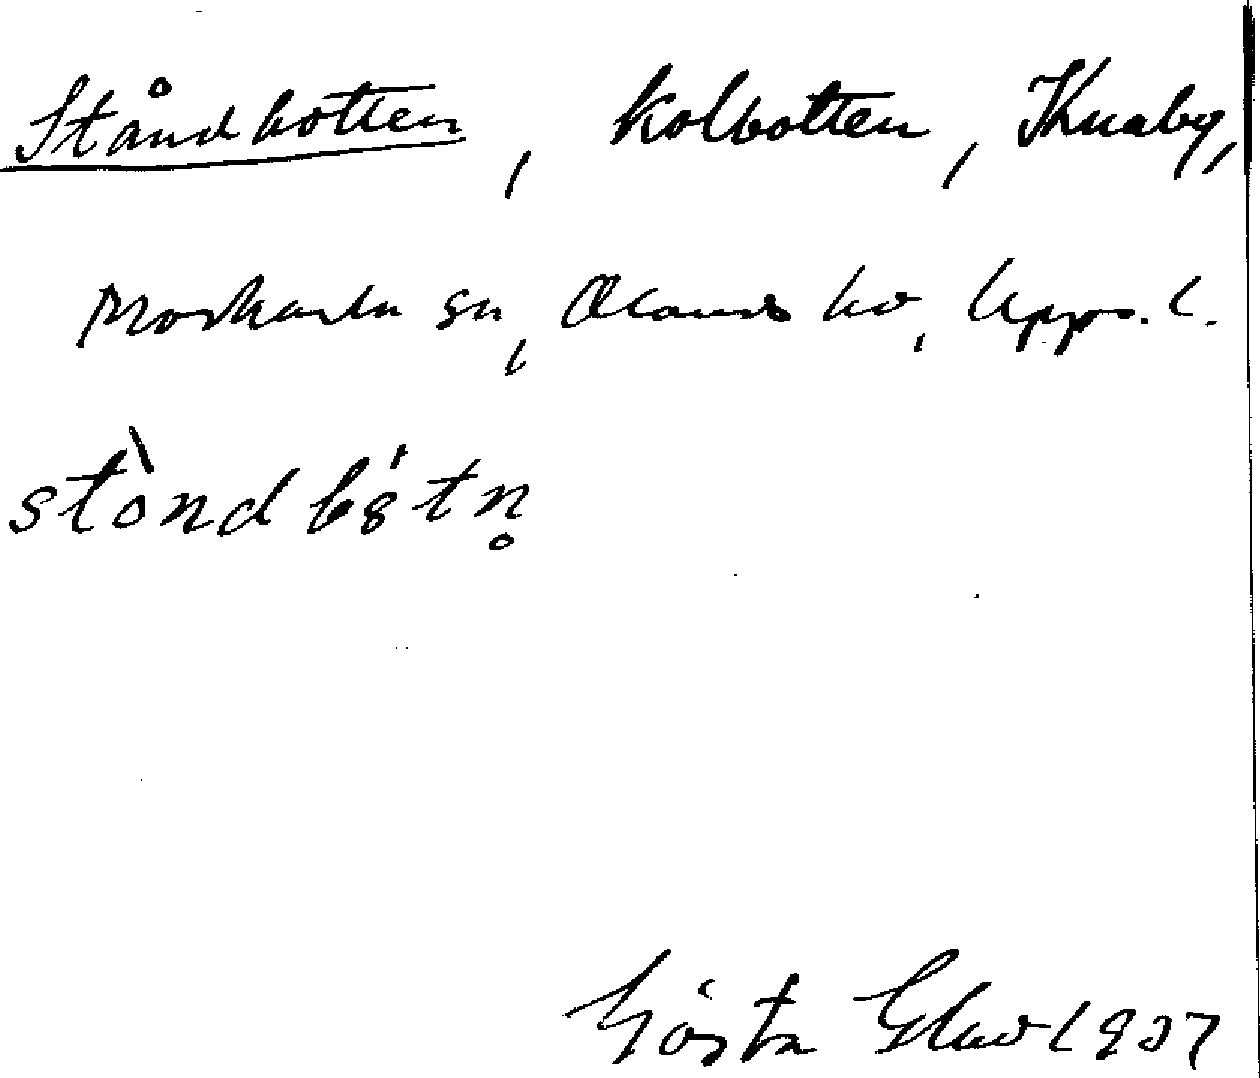 Ståndbotten, kolbotten, Knaby,
Morkarla sn, Olands hd, Upps. l.
stònd bótn̥
Gösta 1937